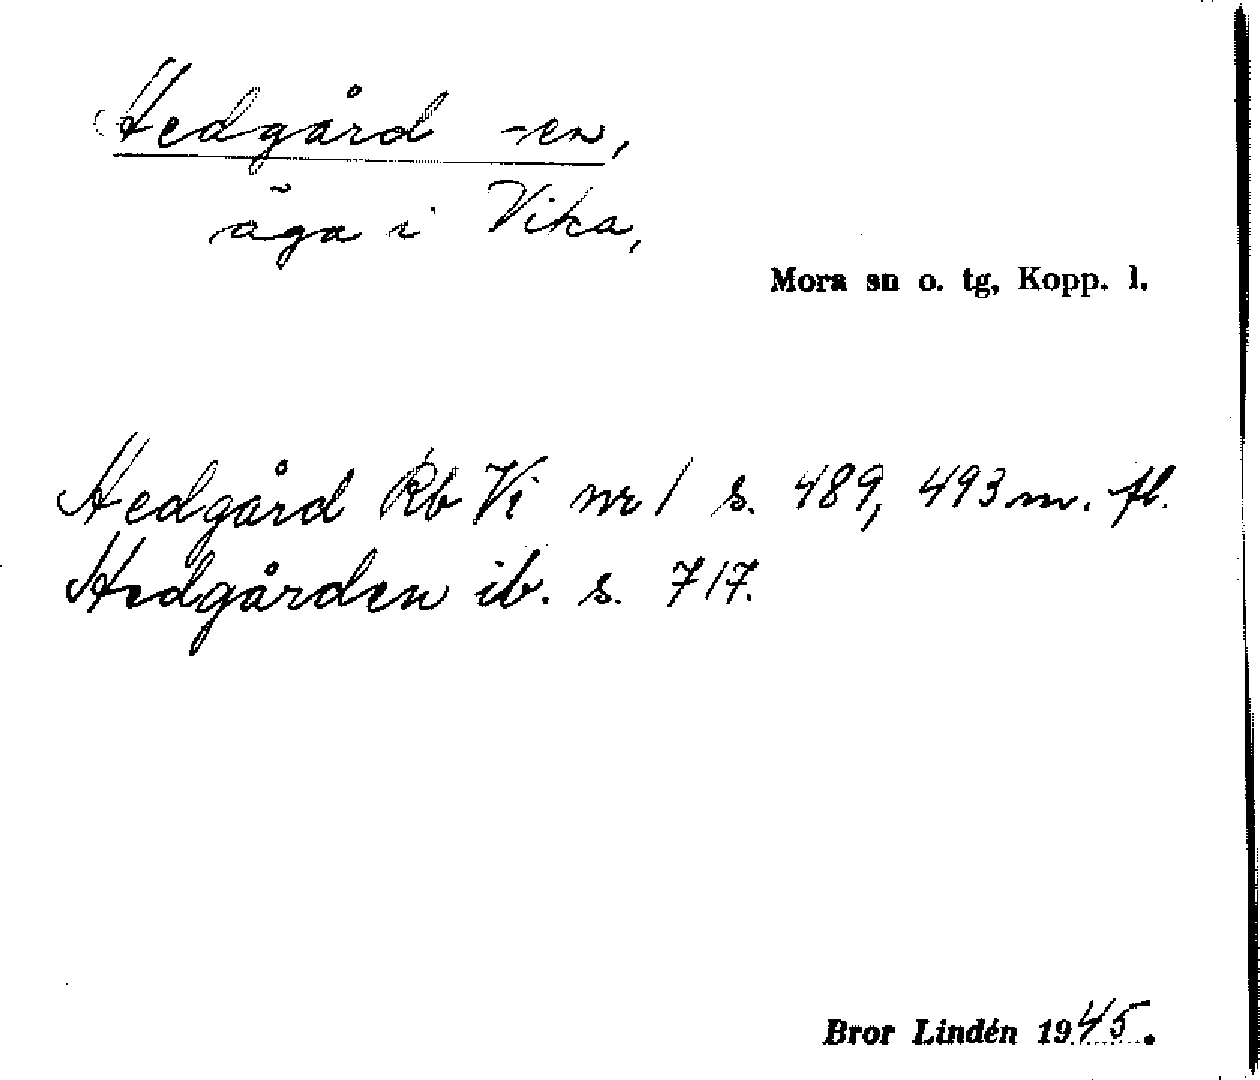 Hedgård -en,
äga i Vika,
Mora sn o. tg, Kopp. l.
Hedgård Rb Vi nr 1 s. 489, 493 m. fl.
Hedgården ib. s. 717.
Bror Lindén 1945.